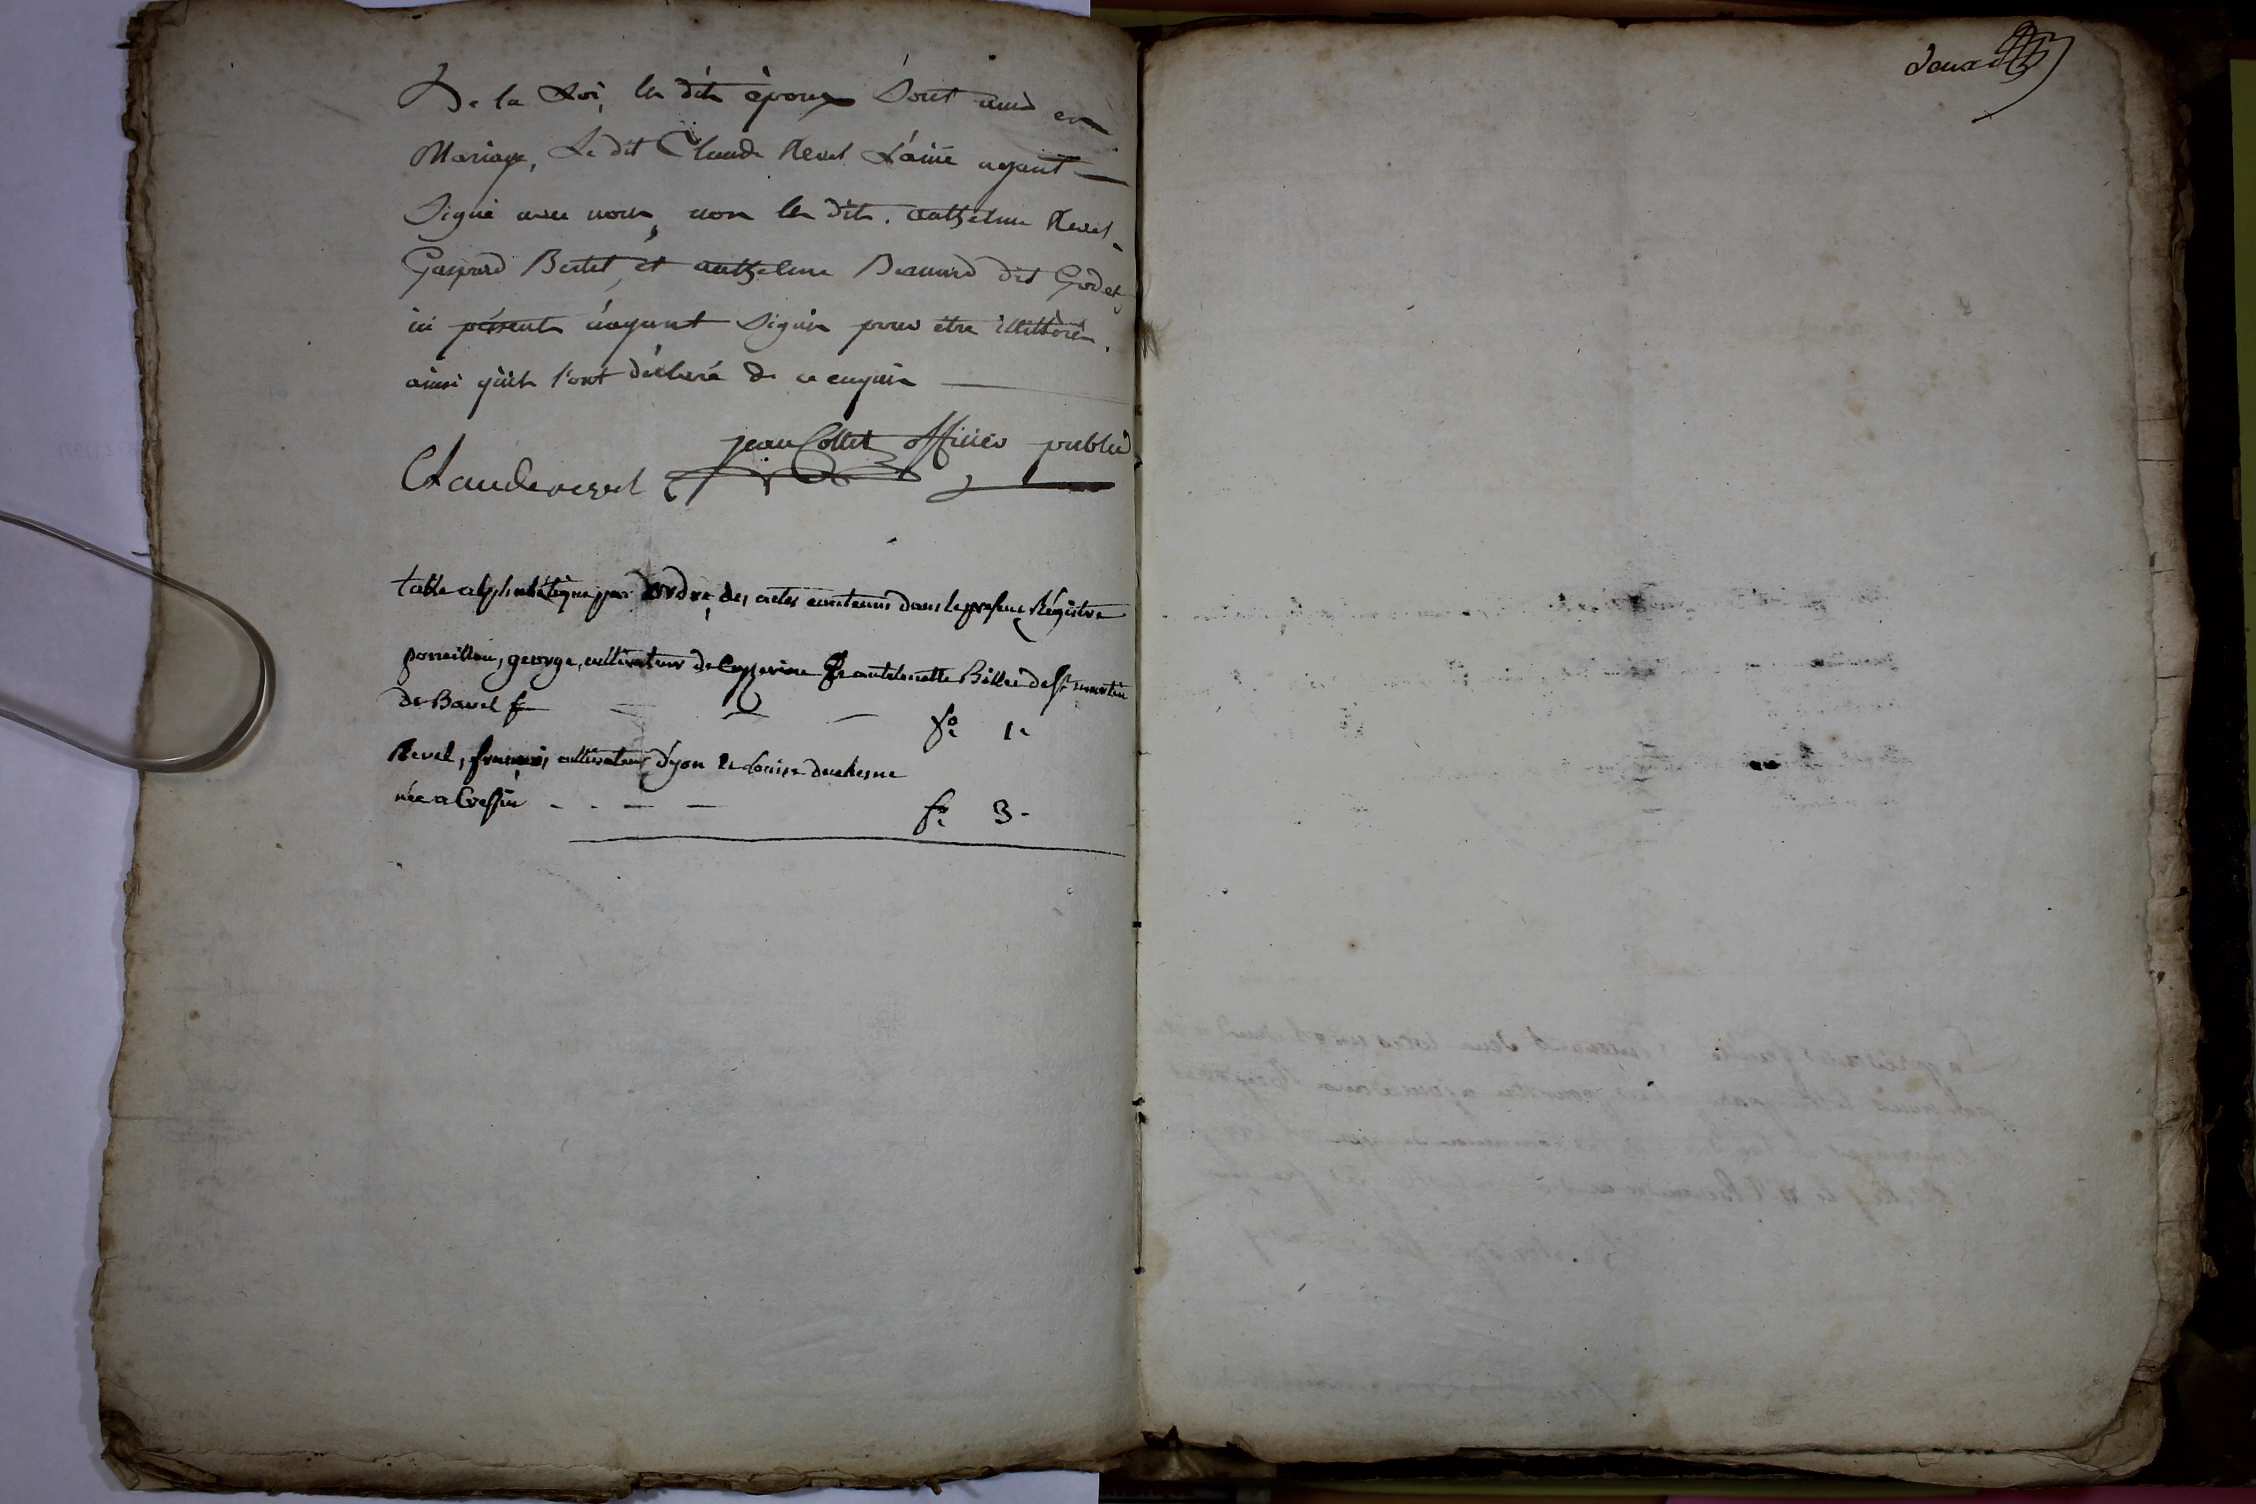 De la Loi, les dits époux Sont unis en
Mariage, Le dit Claude Revel L'ainé ayant
Signé avec nous, non les dits. anthelme Revel
Gaspard Bertet, et anthelme Beaunrd dit Godet
ici présents n'ayant Signés pour être illitérés.
ainsi qu'ils l'ont déclaré de ce enquis
jean Collet officier public
Clauderevel
table alphabétique par Ordre, des actes contenus dans le présent Régistre
poncillon, george, cultivateur de Ceyzerieu & antelmette Billiet de st martin
de Bavel f
fo. 1.
Revel, françois, cultivateur d'yon & Louise duchesne
née a Cressin
fo. 3-
deux